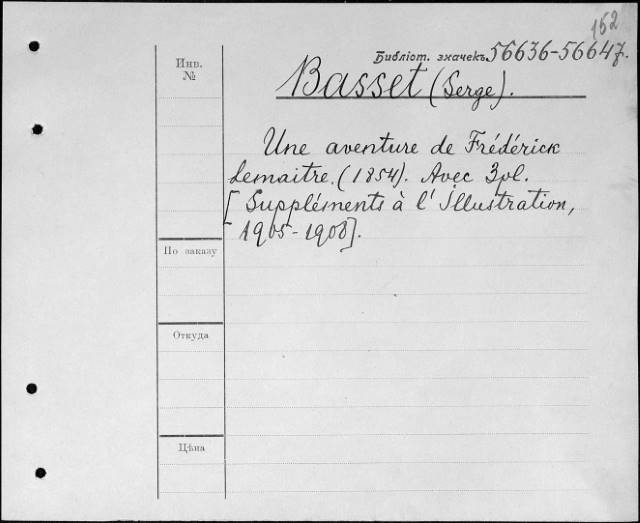 162
Инв.
№
Библіот. значекъ 56636-56647.
Basset (Serge).
Une aventure de Frédérick
Lemaitre. (1854). Avec 3 pl.
[Suppléments à l'Illustration,
1905-1908].
По заказу
Откуда
Цѣна